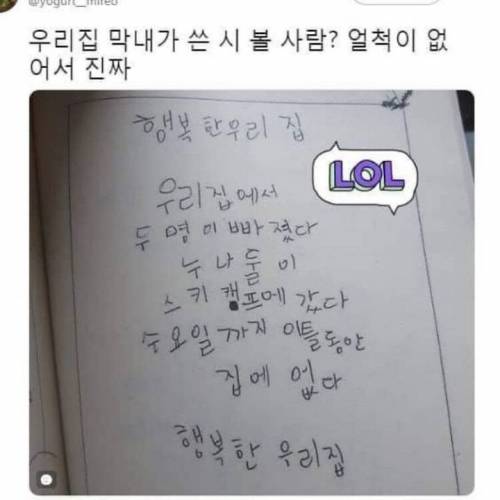 @yogurt__mireo
우리집 막내가 쓴 시 볼 사람? 얼척이 없
어서 진짜
행복한우리 집
LOL
우리집에서
두 명이 빠졌다
누나둘이
스키 캠프메 갔다
수요일까지 이틀동안
집메 없다
행복한 우리집